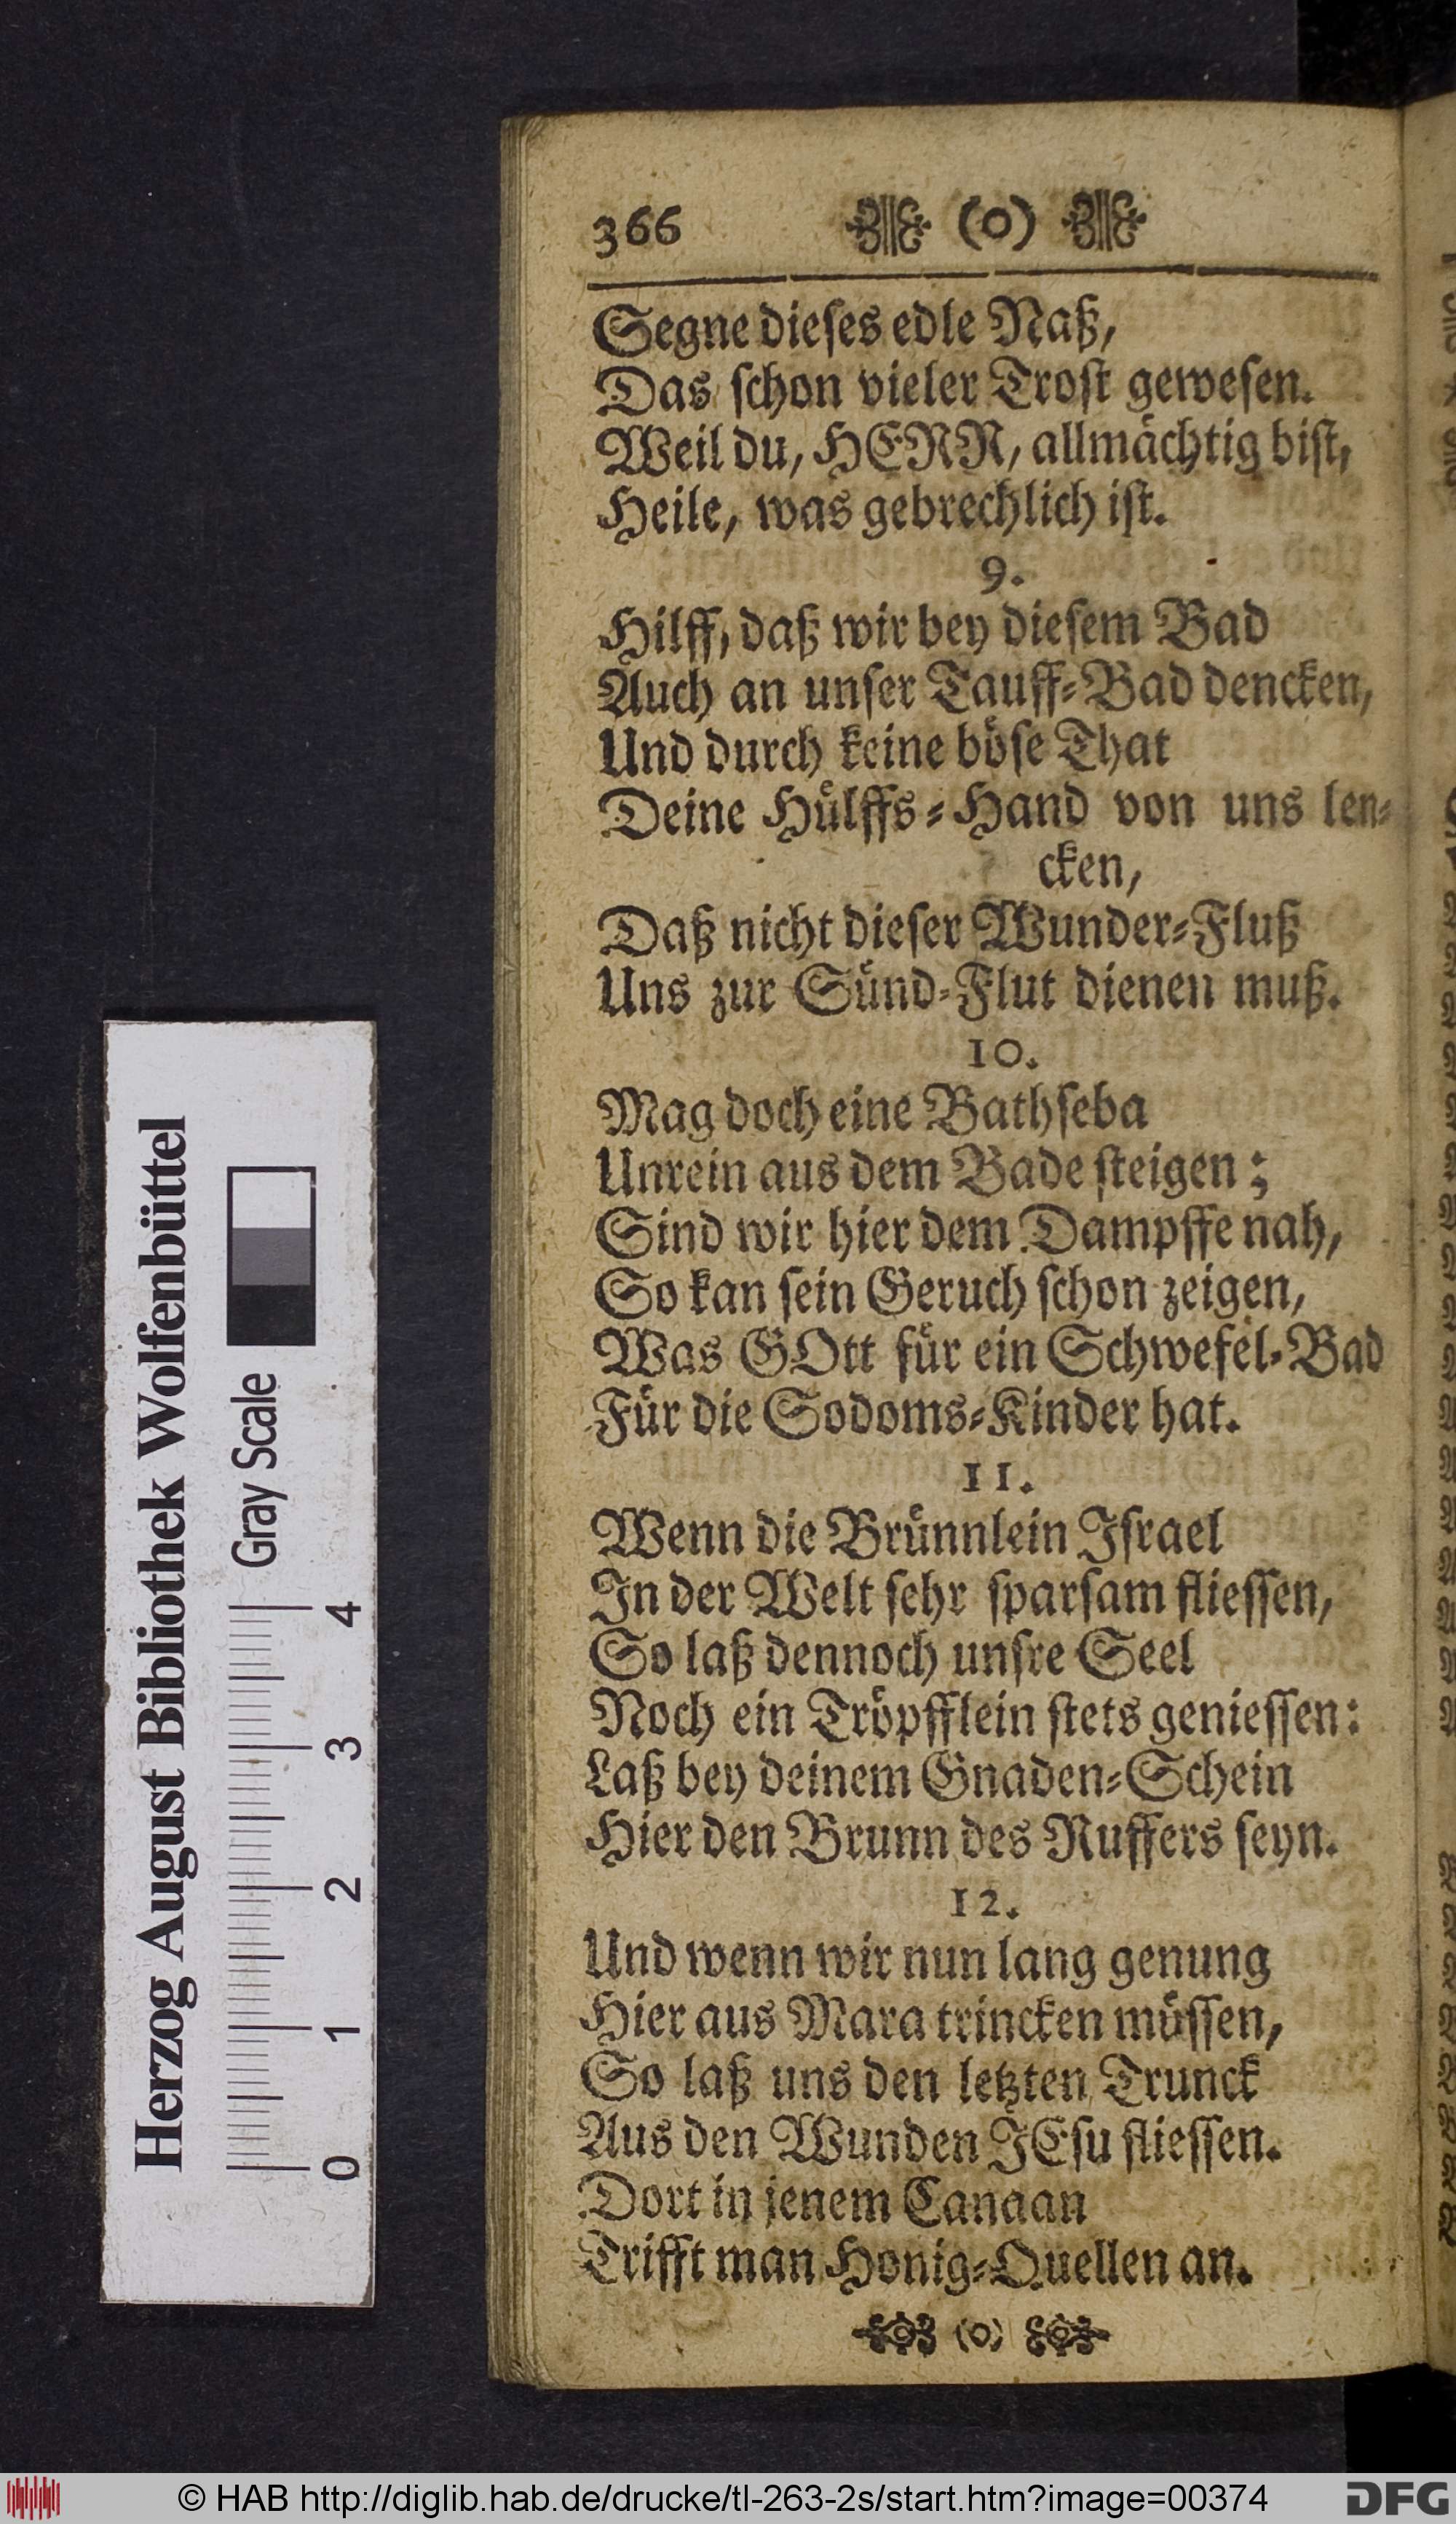 366 (o)
Segne dieses edle Naß,
Das schon vieler Trost gewesen.
Weil du, HERR, allmächtig bist,
Heile, was gebrechlich ist.
9.
Hilff, daß wir bey diesem Bad
Auch an unser Tauff-Bad dencken,
Und durch keine böse That
Deine Hülffs-Hand von uns len-
cken,
Daß nicht dieser Wunder-Fluß
Uns zur Sünd-Flut dienen muß.
10.
Mag doch eine Bathseba
Unrein aus dem Bade steigen;
Sind wir hier dem Dampffe nah,
So kan sein Geruch schon zeigen,
Was GOtt für ein Schwefel-Bad
Für die Sodoms-Kinder hat.
11.
Wenn die Brünnlein Israel
In der Welt sehr sparsam fliessen,
So laß dennoch unsre Seel
Noch ein Tröpfflein stets geniessen:
Laß bey deinem Gnaden-Schein
Hier den Brunn des Ruffers seyn.
12.
Und wenn wir nun lang genung
Hier aus Mara trincken müssen,
So laß uns den letzten Trunck
Aus den Wunden JEsu fliessen.
Dort in jenem Canaan
Trifft man Honig-Quellen an.
(o)
Herzog August Bibliothek Wolfenbüttel
Gray Scale
0 1 2 3 4
© HAB http://diglib.hab.de/drucke/tl-263-2s/start.htm?image=00374
DFG